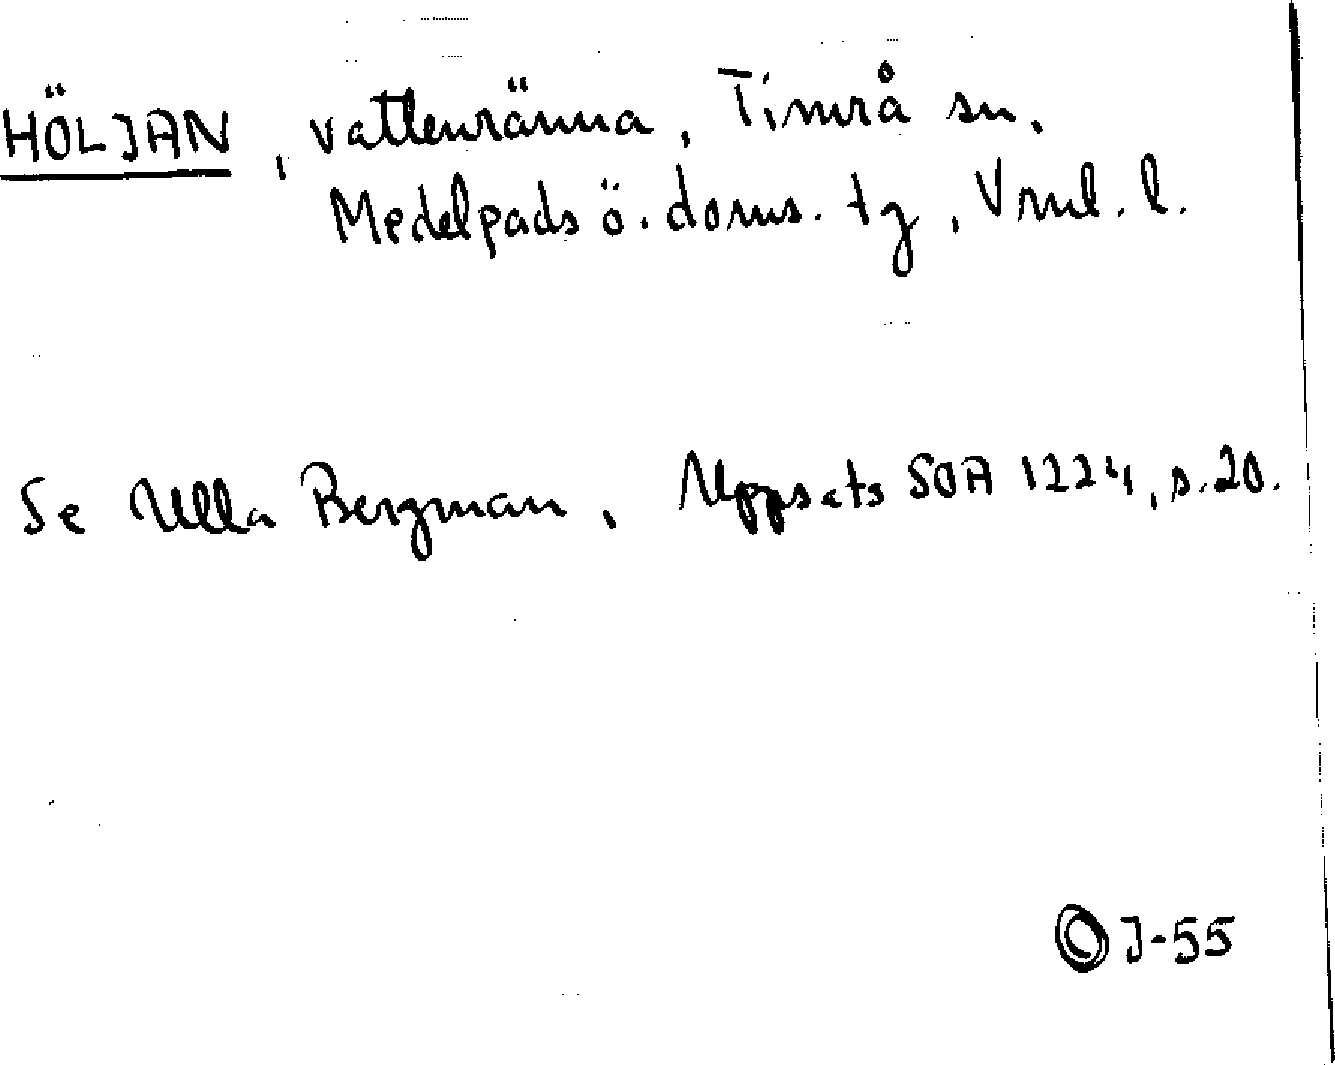 HÖLJAN, vattenränna, Timrå sn.
Medelpads ö. doms. tg, Vrnl. l.
Se Ulla Bergman, Uppsats SOA 1224, s. 20.
J-55